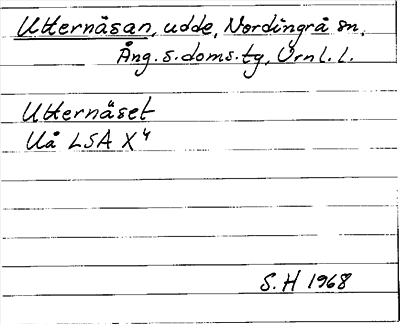 Utternäsan, udde, Nordingrå sn,
Ång. s. doms. tg, Örnl. l.
Utternäset
Uå LSA X 4
S. H 1968